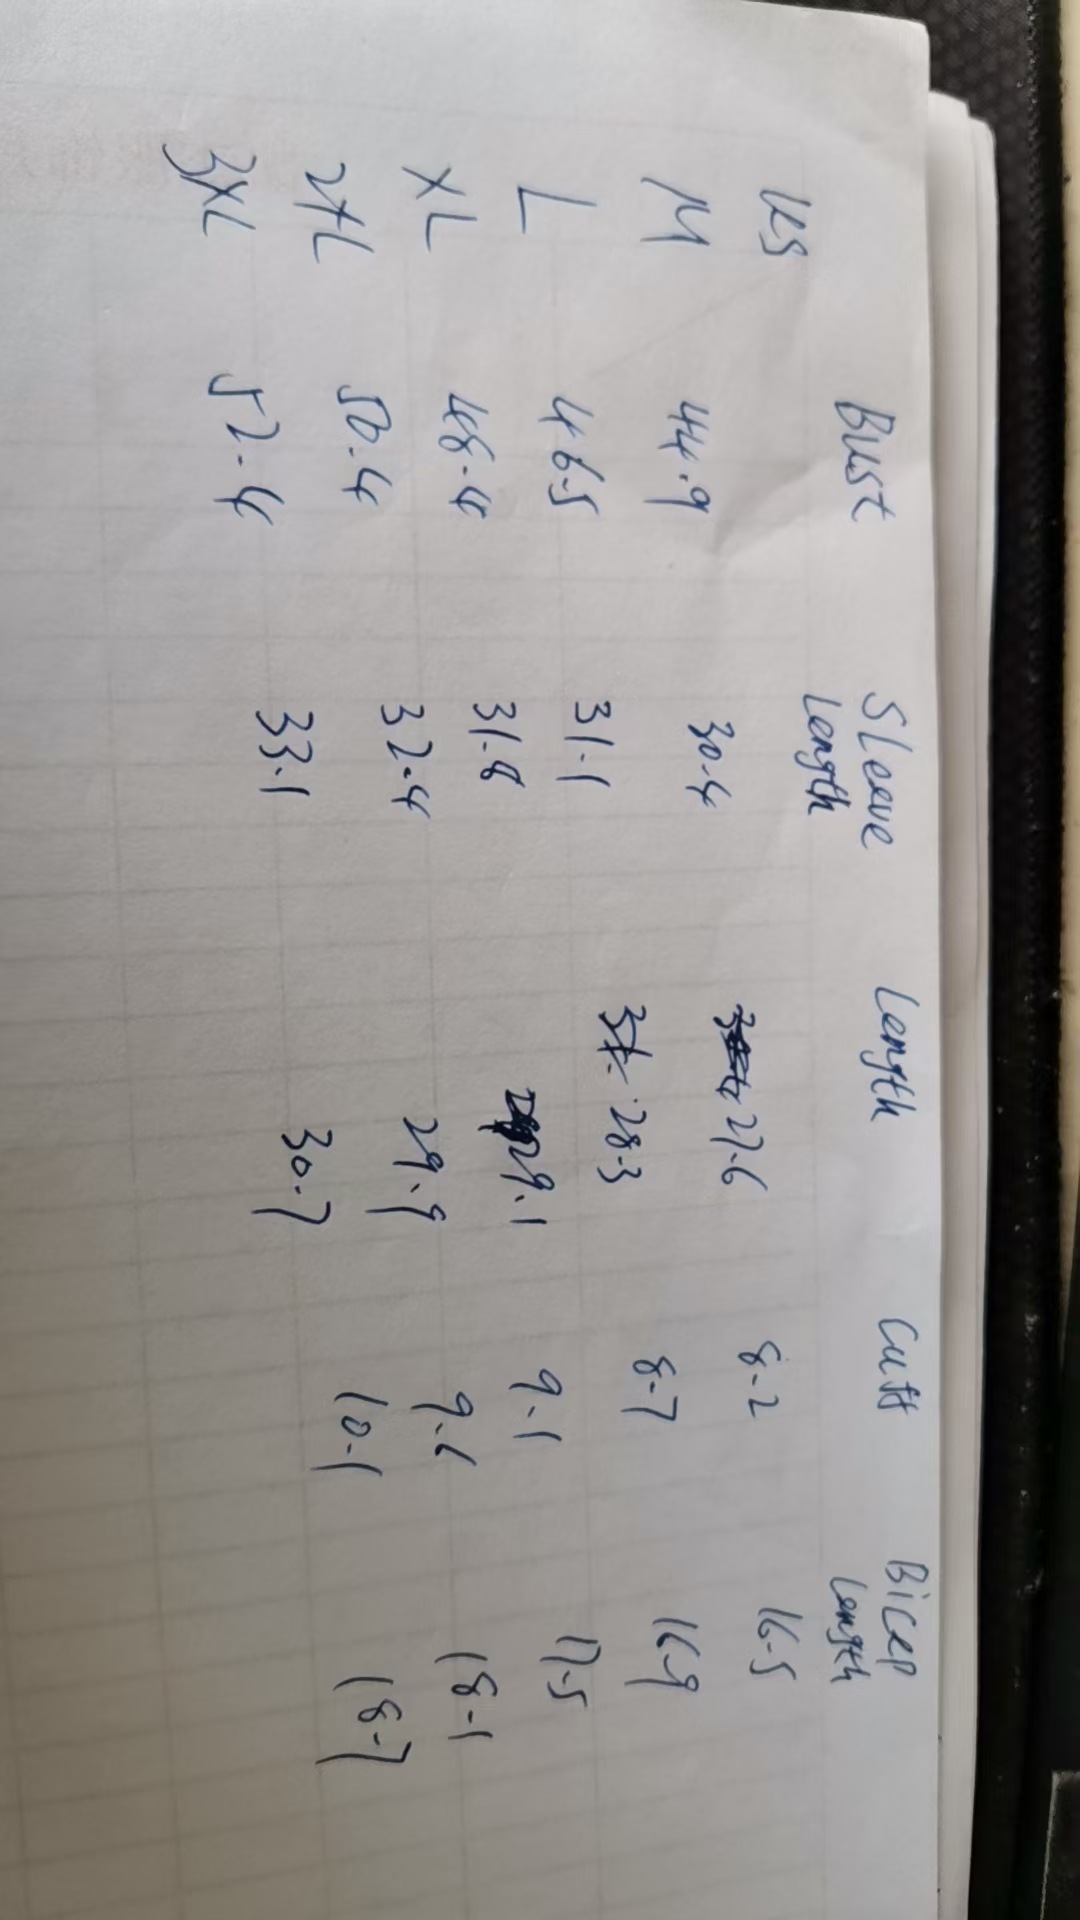 Bust Sleeve Length Cuff Bicep
US Length Length
M 44.9 30.4 27.6 8.2 16.5
L 46.5 31.1 28.3 8.7 16.9
XL 48.4 31.8 29.1 9.1 17.5
2XL 50.4 32.4 29.9 9.6 18.1
3XL 52.4 33.1 30.7 10.1 18.7